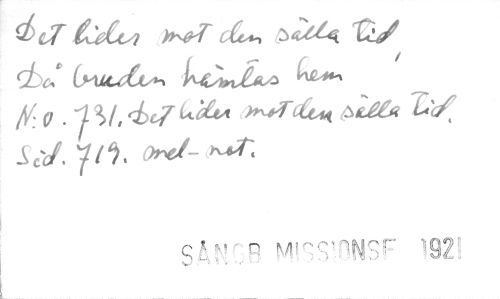 Det lider mot den sälla tid,
Då bruden hämtas hem
N:o. 731. Det lider mot den sälla tid.
Sid. 719. mel-not.
SÅNGB MISSIONSF 1921